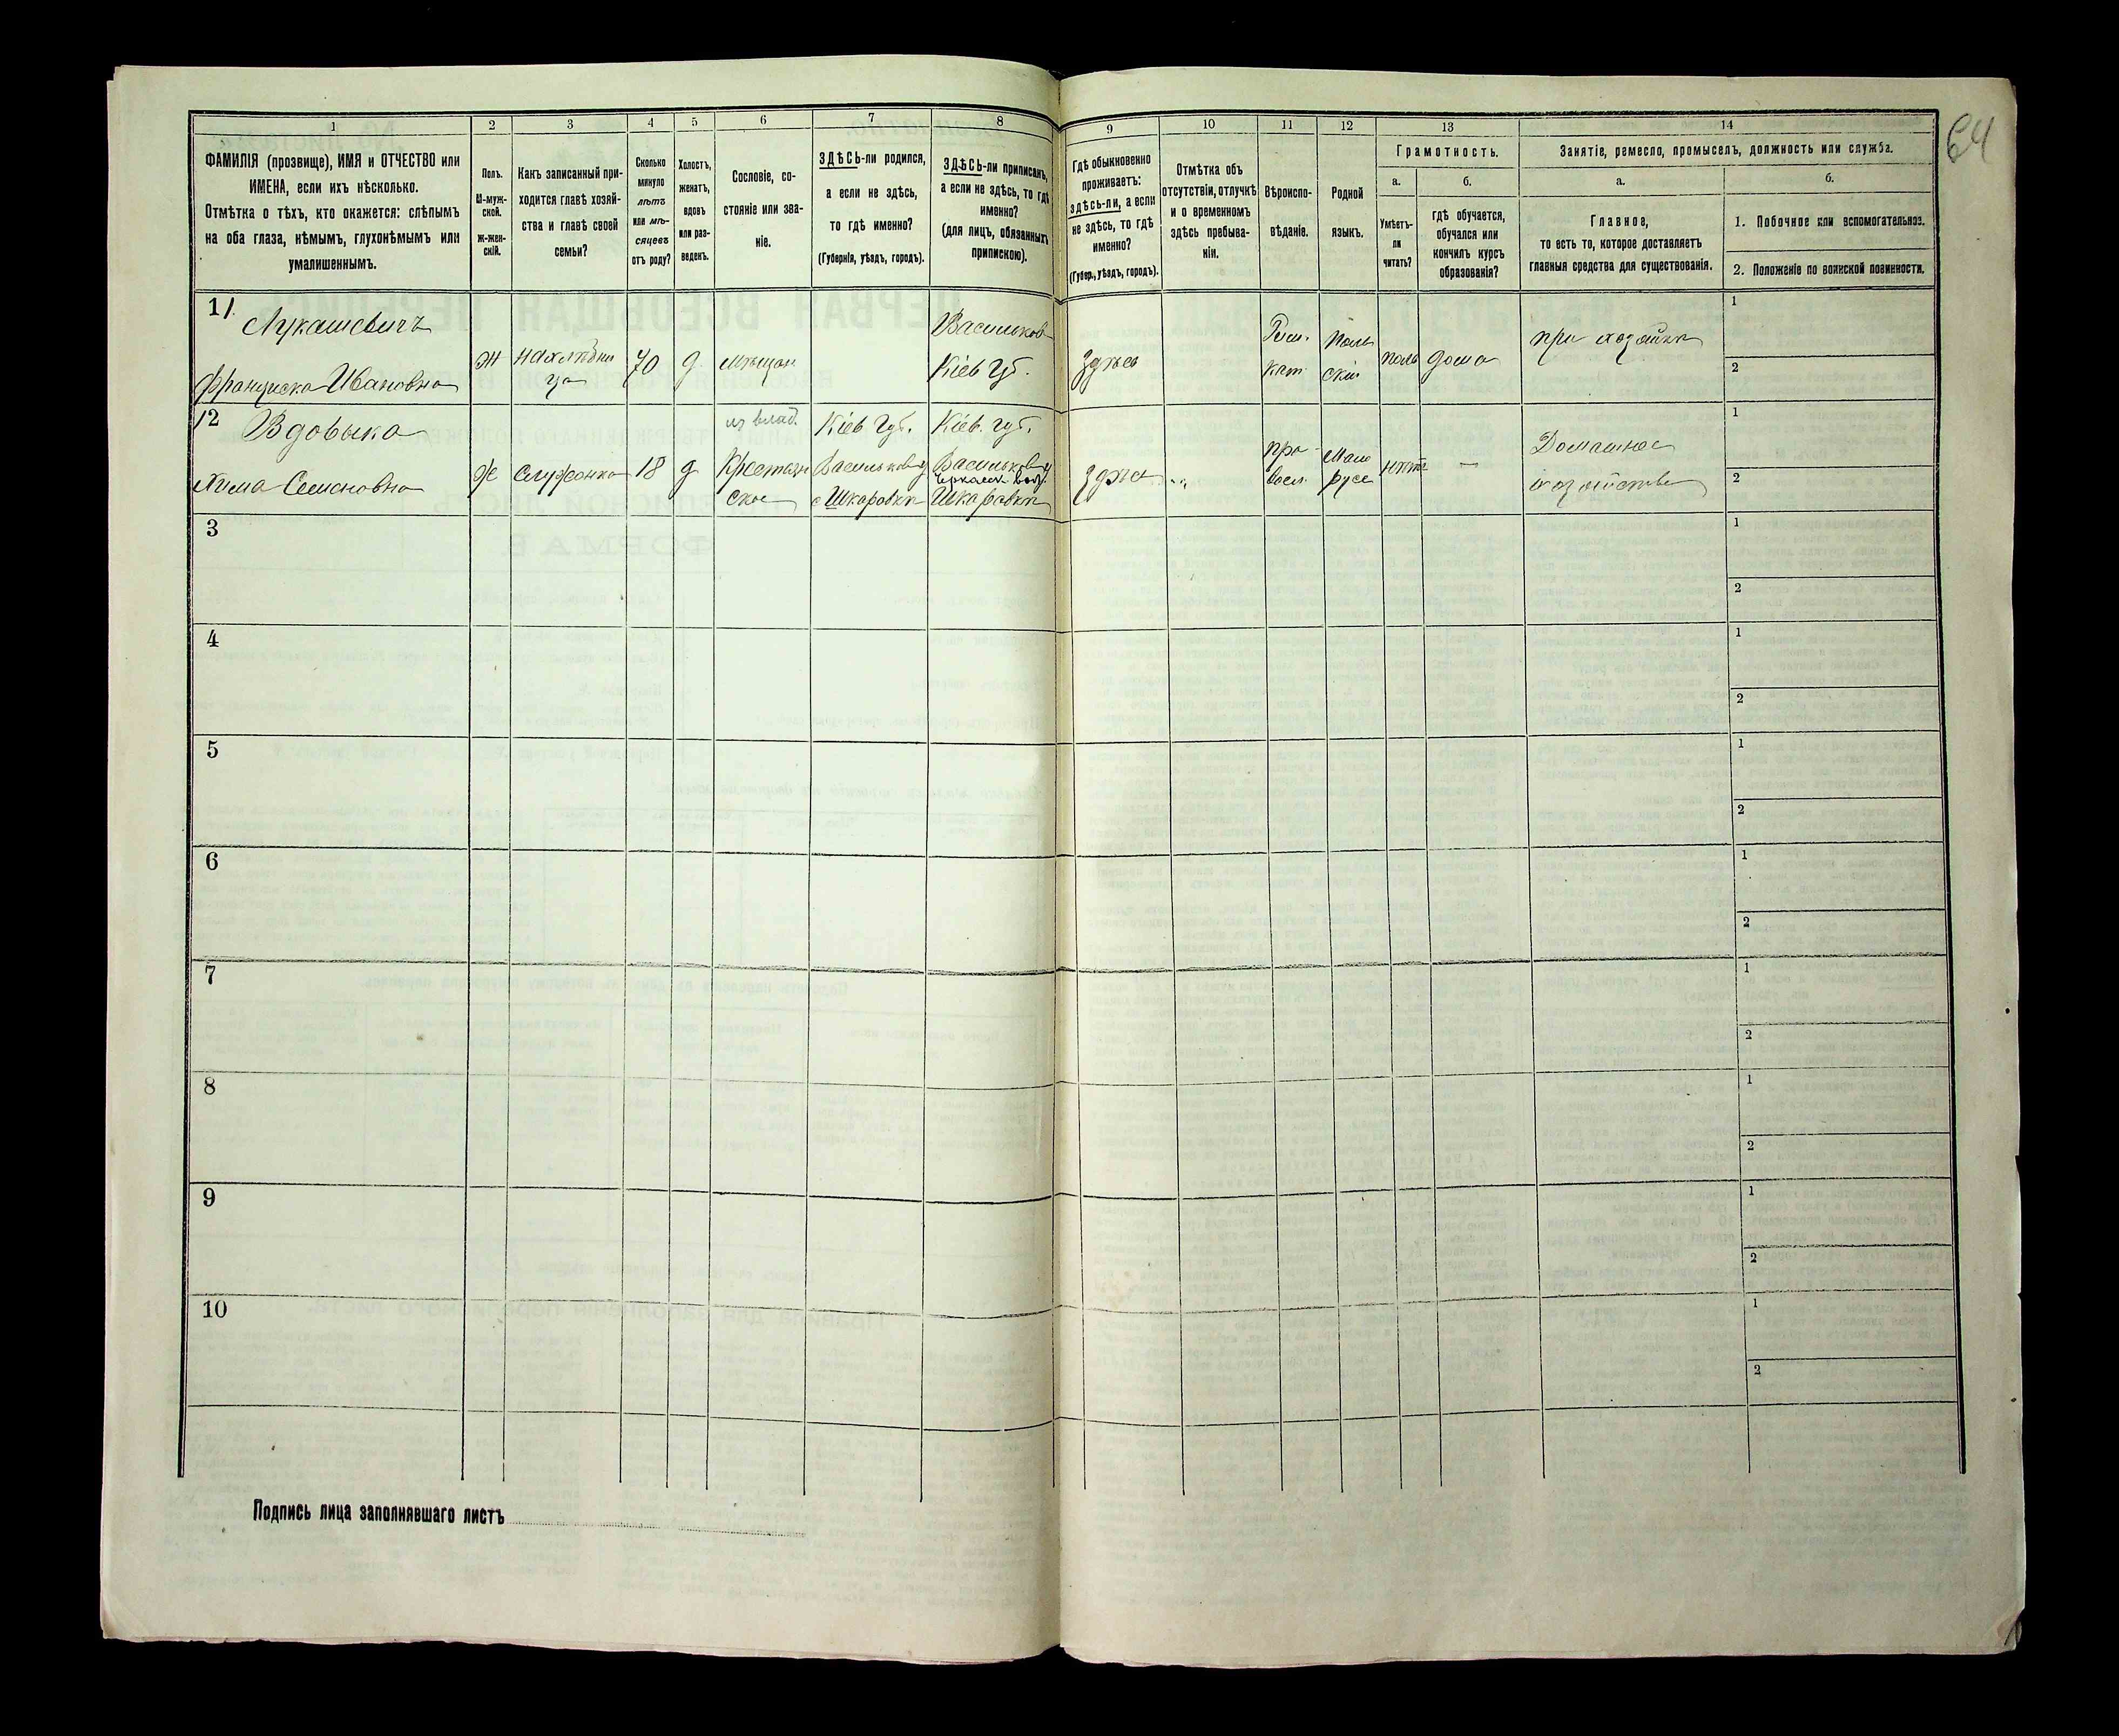 1 2 3 4 5 6 7 8 9 10 11 12 13 14
64
ФАМИЛІЯ (прозвище), ИМЯ и ОТЧЕСТВО или
ИМЕНА, если ихъ нѣсколько.
Отмѣтка о тѣхъ, кто окажется: слѣпымъ
на оба глаза, нѣмымъ, глухонѣмымъ или
умалишеннымъ.
Полъ.
М-муж-
ской.
Ж-жен-
скій.
Какъ записанный при-
ходится главѣ хозяй-
ства и главѣ своей
семьи?
Сколько
минуло
лѣтъ
или мѣ-
сяцевъ
отъ роду?
Холостъ,
женатъ,
вдовъ
или раз-
веденъ.
Сословіе, со-
стояніе или зва-
ніе.
ЗДѢСЬ-ли родился,
а если не здѣсь,
то гдѣ именно?
(Губернія, уѣздъ, городъ).
ЗДѢСЬ-ли приписанъ,
а если не здѣсь, то гдѣ
именно?
(для лицъ, обязанныхъ
припискою).
Гдѣ обыкновенно
проживаетъ:
здѣсь-ли, а если
не здѣсь, то гдѣ
именно?
(Губер., уѣздъ, городъ).
Отмѣтка объ
отсутствіи, отлучкѣ
и о временномъ
здѣсь пребыва-
ніи.
Вѣроиспо-
вѣданіе.
Родной
языкъ.
Грамотность.
а.
Умѣетъ-
ли
читать?
б.
гдѣ обучается,
обучался или
кончилъ курсъ
образованія?
Занятіе, ремесло, промыселъ, должность или служба.
а.
Главное,
то есть то, которое доставляетъ
главныя средства для существованія.
б.
1. Побочное или вспомогательное.
2. Положеніе по воинской повинности.
11.
Лукашевичъ
Франциска Ивановна
Ж
нахлѣбни
ца
70
д.
мѣщан
Васильков
Кіев губ.
здѣсь
Рим.
кат.
поль
скій
поль
дома
при хозяйкѣ
1
2
12
Вдовыка
Хима Семеновна
Ж
служанка
18
д
из влад.
Крестьян
ское
Кіев губ.
Васильков у
с Шкаровки
Кіев. губ.
Васильков у
Шкаровки
здѣсь
пра-
восл.
Мало
русс
нѣтъ
—
Домашнее
хозяйство
1
2
3
1
2
4
1
2
5
1
2
6
1
2
7
1
2
8
1
2
9
1
2
10
1
2
Подпись лица заполнявшаго листъ